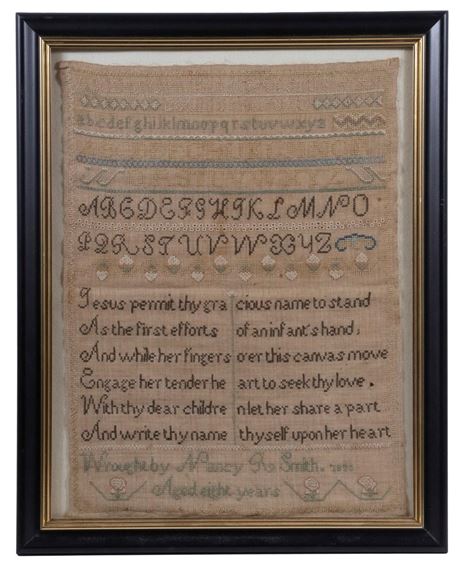 abcdefghiklmnopqrstuvwxyz
ABCDEFGHIKLMNO
PQRSTUVWXYZ
Jesus permit thy gracious name to stand
As the first efforts of an infant's hand,
And while her fingers o'er this canvas move
Engage her tender heart to seek thy love.
With thy dear children let her share a part
And write thy name thyself upon her heart
Wrought by Nancy Smith.
Aged eight years